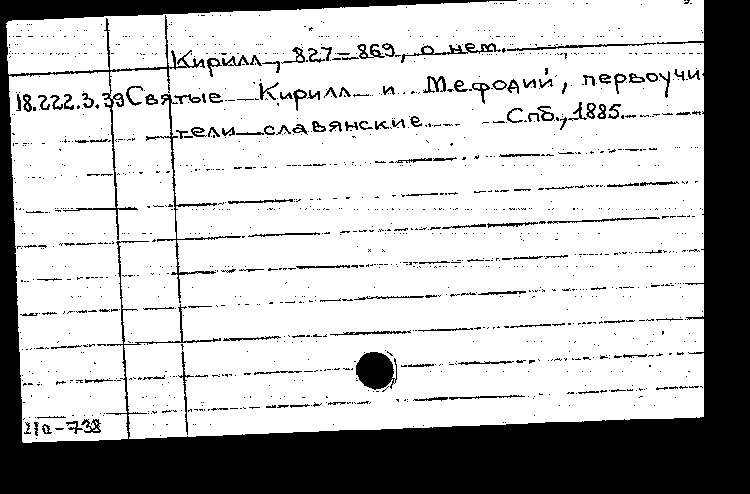 Кирилл, 827-869, о нем.
18.222.3.39 Святые Кирилл и Мефодий, первоучи-
тели славянские. Спб., 1885.
21а-738